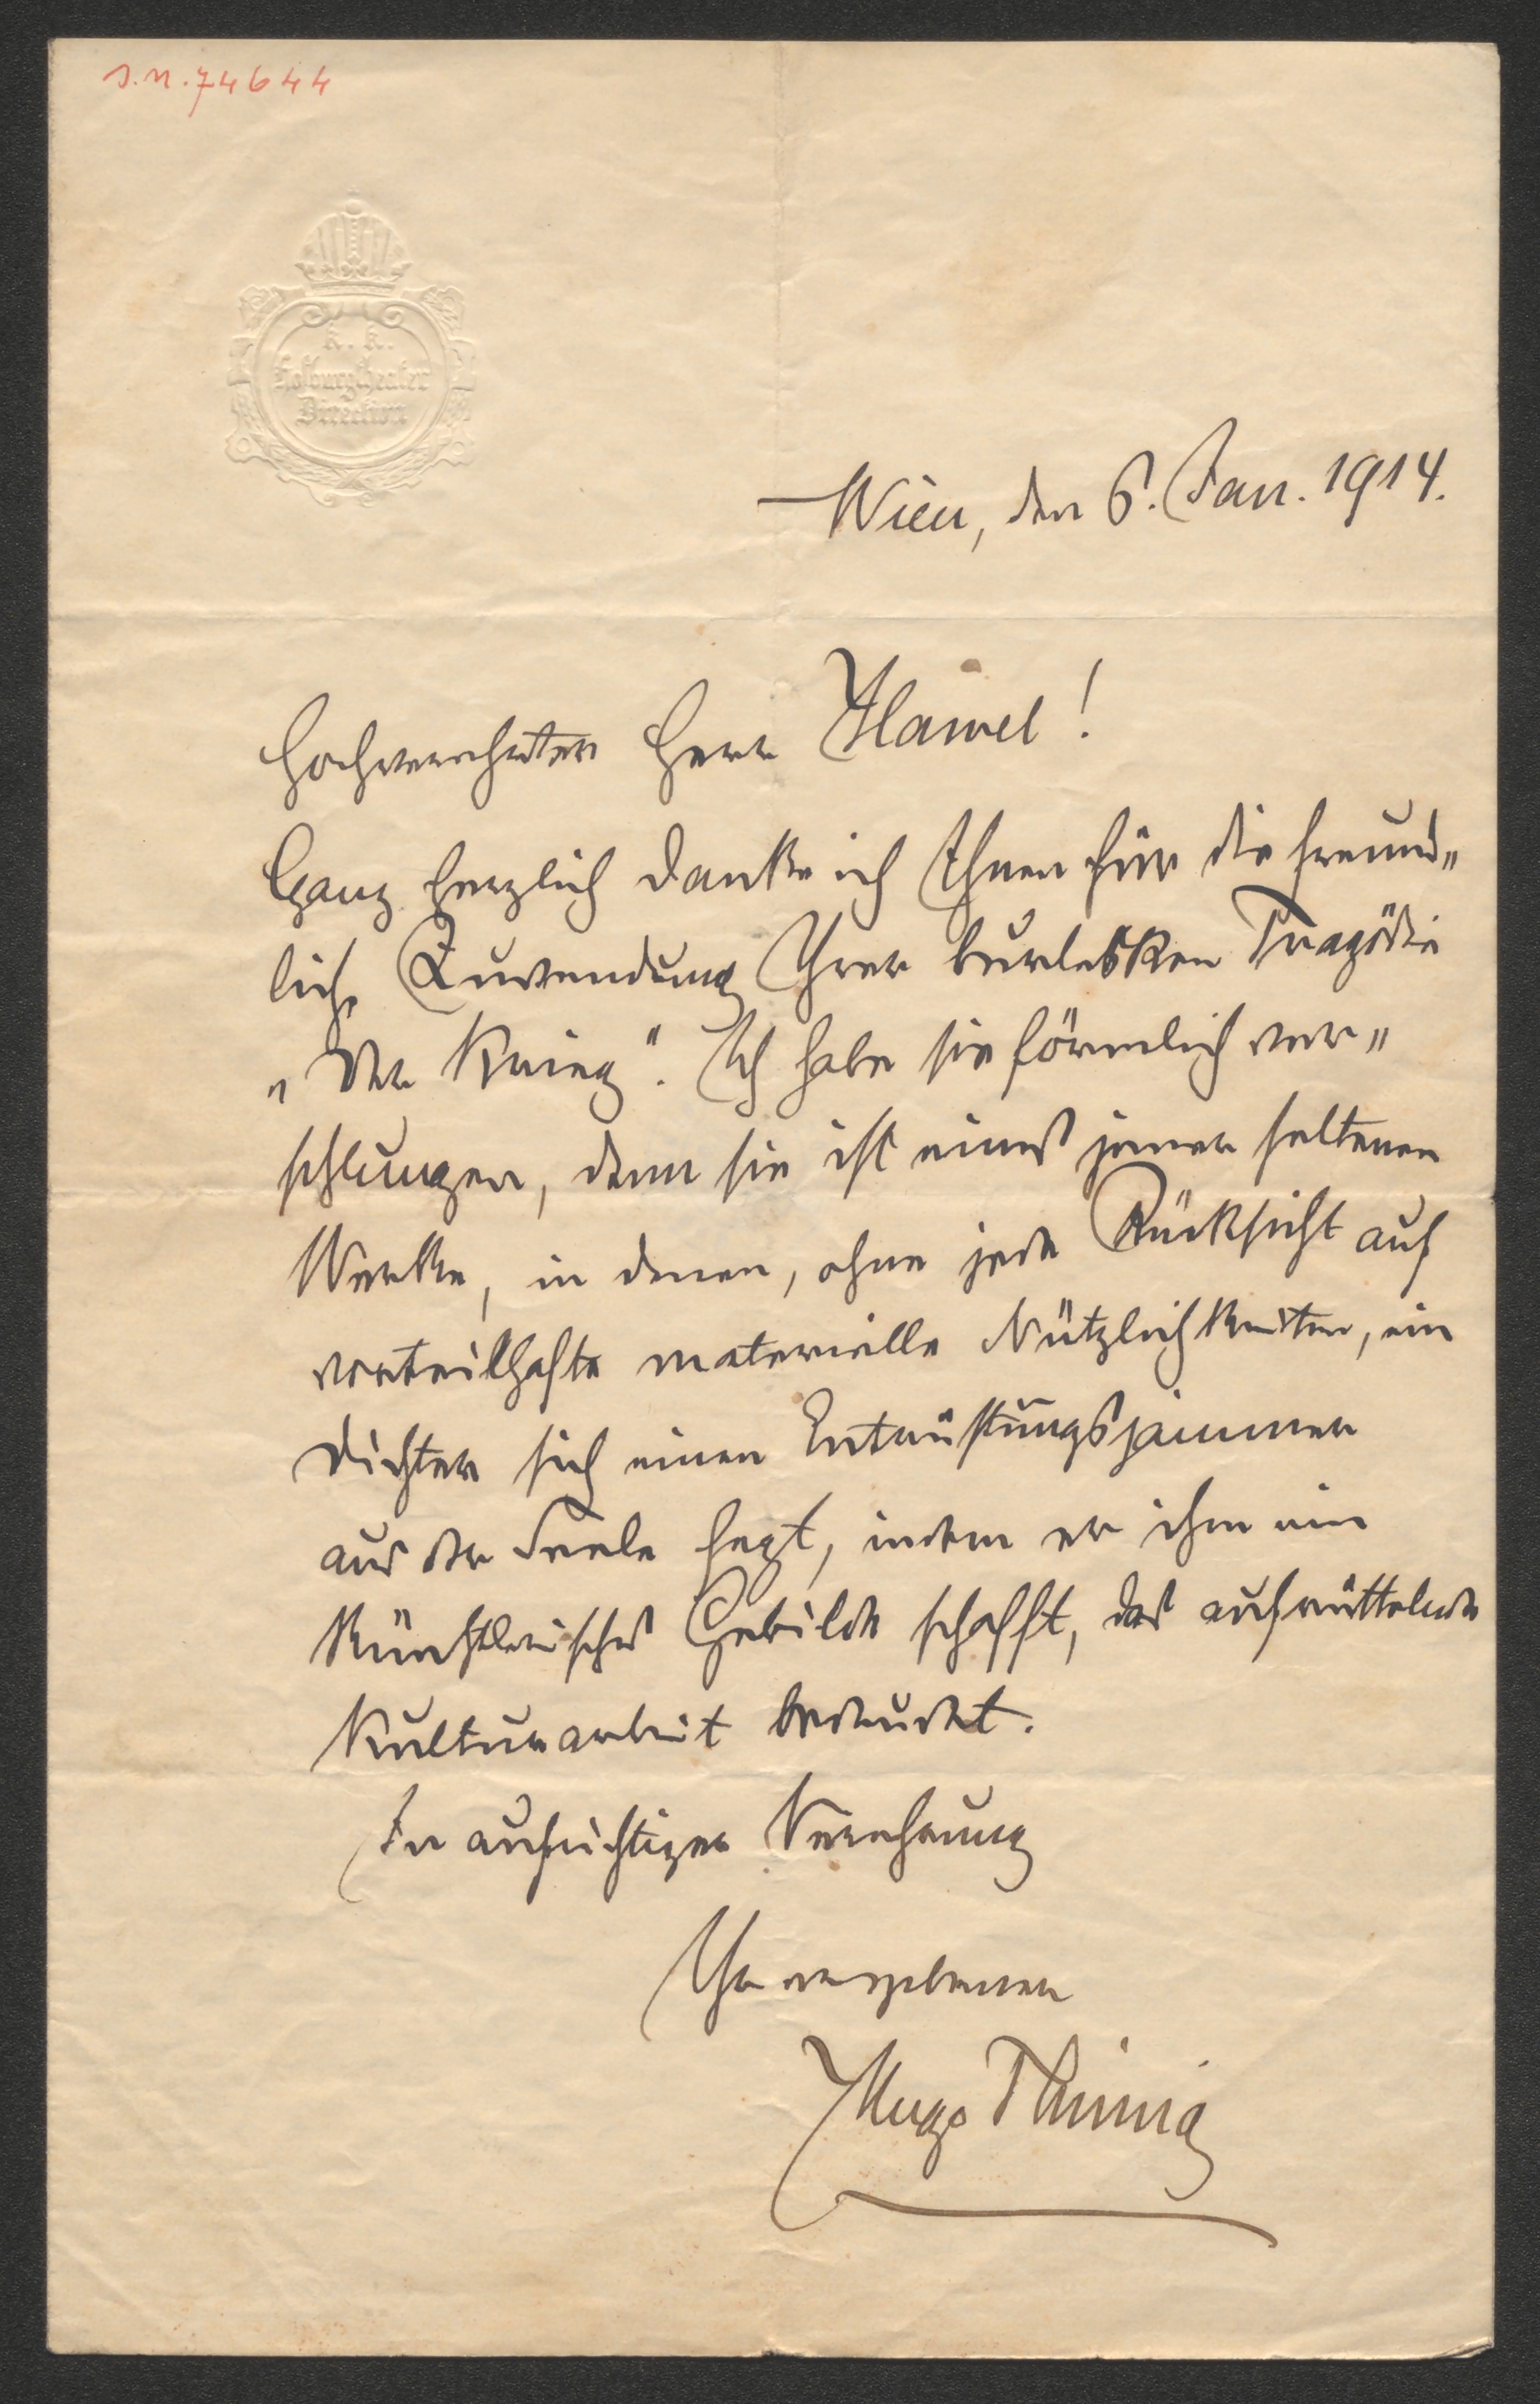 J.N. 74644
K. K.
Hofburgtheater
Direction
Wien, den 6. Jan. 1914.
Hochverehrter Herr Hawel!
Ganz herzlich danke ich Ihnen für die freund„
liche Zuwendung Ihrer burlesken Tragödie
„Der Krieg". Ich habe sie förmlich ver„
schlungen, denn sie ist eines jener seltenen
Werke, in denen, ohne jede Rücksicht auf
vorteilhafte materielle Nützlichkeiten, ein
Dichter sich einen Entrüstungsjammer
aus der Seele fegt, indem er ihm ein
künstlerisches Gebilde schafft, das aufrüttelnde
Kulturarbeit bedeutet.
In aufrichtiger Verehrung
Ihr ergebener
Hugo Thimig